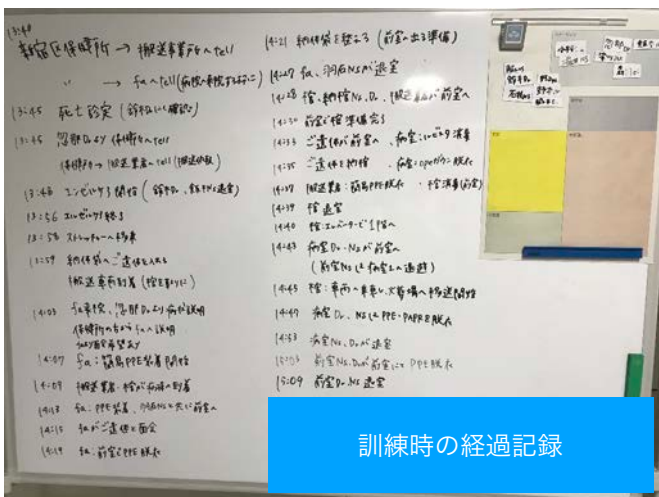 13:40
新宿区保健所 → 搬送事業所へtell
〃 → faへtell(病院へ来院するように)
13:45 死亡診定(鈴木Drにて確認)
13:45 忽那Drより保健所へtell
保健所→搬送業者へtell(搬送依頼)
13:48 エンゼルケア開始(鈴木Dr、
13:56 エンゼルケア終了
13:58 ストレッチャーへ移乗
13:59 納体袋へご遺体を入れる
搬送車両到着(棺を
14:03 fa来院、忽那Drより病状説明
保健所の方からfaへ説明
faより面会希望あり
14:07 fa:簡易PPE装着開始
14:09 搬送業者・棺が病棟へ到着
14:13 fa:PPE装着、Nsと共に前室へ
14:15 faがご遺体と面会
14:19 fa:前室でPPE脱衣
14:21 納体袋を整える(前室へ出る準備)
14:27 fa、Nsが退室
14:28 棺、Ns、Dr、搬送業者が前室へ
14:30 前室で棺準備完了
14:33 ご遺体が前室へ、病室:
14:35 ご遺体を納棺、
14:37 搬送業者:簡易PPE脱衣・棺消毒(前室)
14:39 棺退室
14:40 棺:エレベーターで1階へ
14:43 病室Dr、Nsが前室へ
(前室Nsは病室2へ退避)
14:45 棺:車両へ乗車し、火葬場へ移送開始
14:47 病室Dr、NsはPPE・PAPRを脱衣
14:53 病室Ns、Drが退室
15:03 前室Ns、Drが前室にてPPE脱衣
15:09 前室Dr、Ns退室
訓練時の経過記録